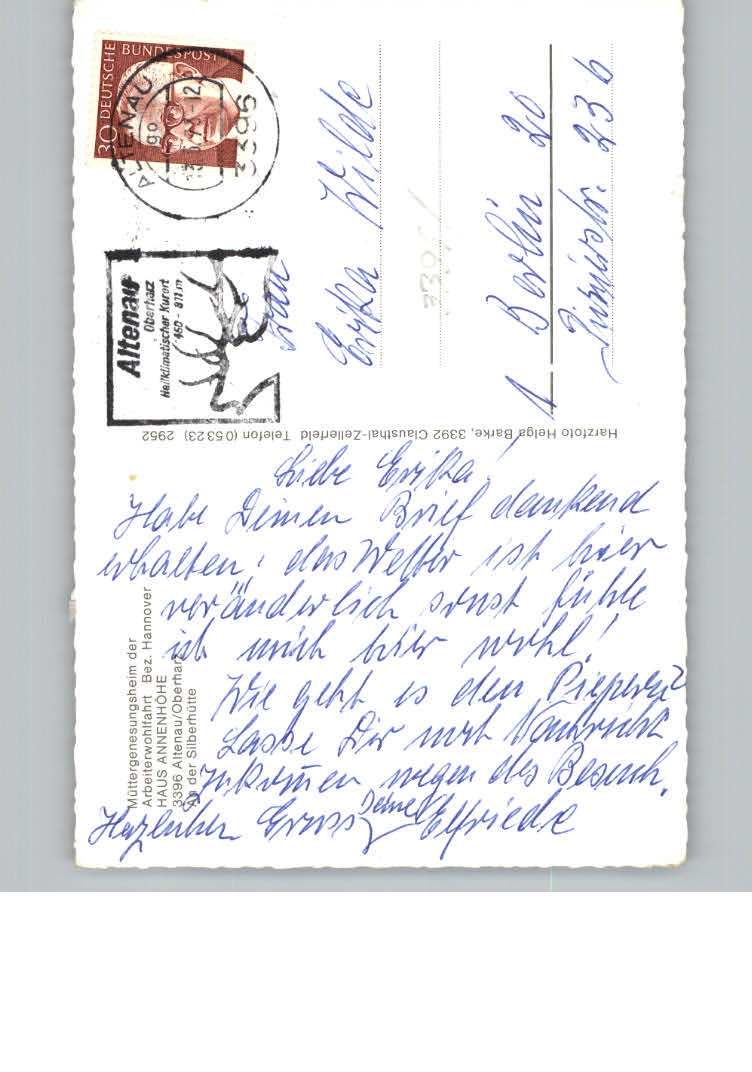 DEUTSCHE BUNDESPOST
30
ALTENAU
3396
Altenau
Oberharz
Heilklimatischer Kurort
460 - 811 m
Frau
Erika Wilde
1 Berlin 20
23 b
Harzfoto Helga Barke, 3392 Clausthal-Zellerfeld Telefon (05323) 2952
Müttergenesungsheim der
Arbeiterwohlfahrt Bez. Hannover
HAUS ANNENHÖHE
3396 Altenau/Oberharz
An der Silberhütte
Liebe Erika!
Habe Deinen Brief dankend
erhalten, das Wetter ist hier
veränderlich sonst fühle
ich mich hier wohl!
Wie geht es den Piepern?
Lasse Dir noch Nachricht
zukommen wegen des Besuch.
Herzlichen Gruss Deine Elfriede